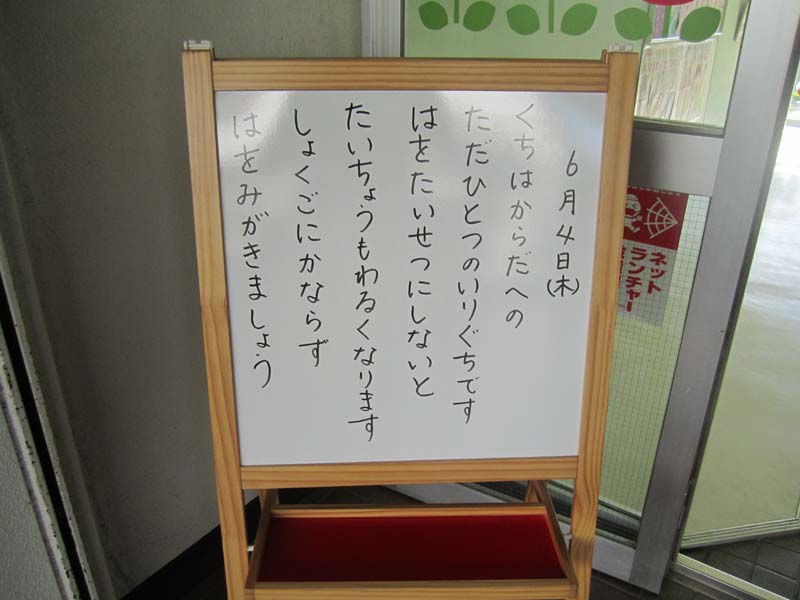 6月4日(木)
くちはからだへの
ただひとつのいりぐちです
はをたいせつにしないと
たいちょうもわるくなります
しょくごにかならず
はをみがきましょう
ネット
ランチャー